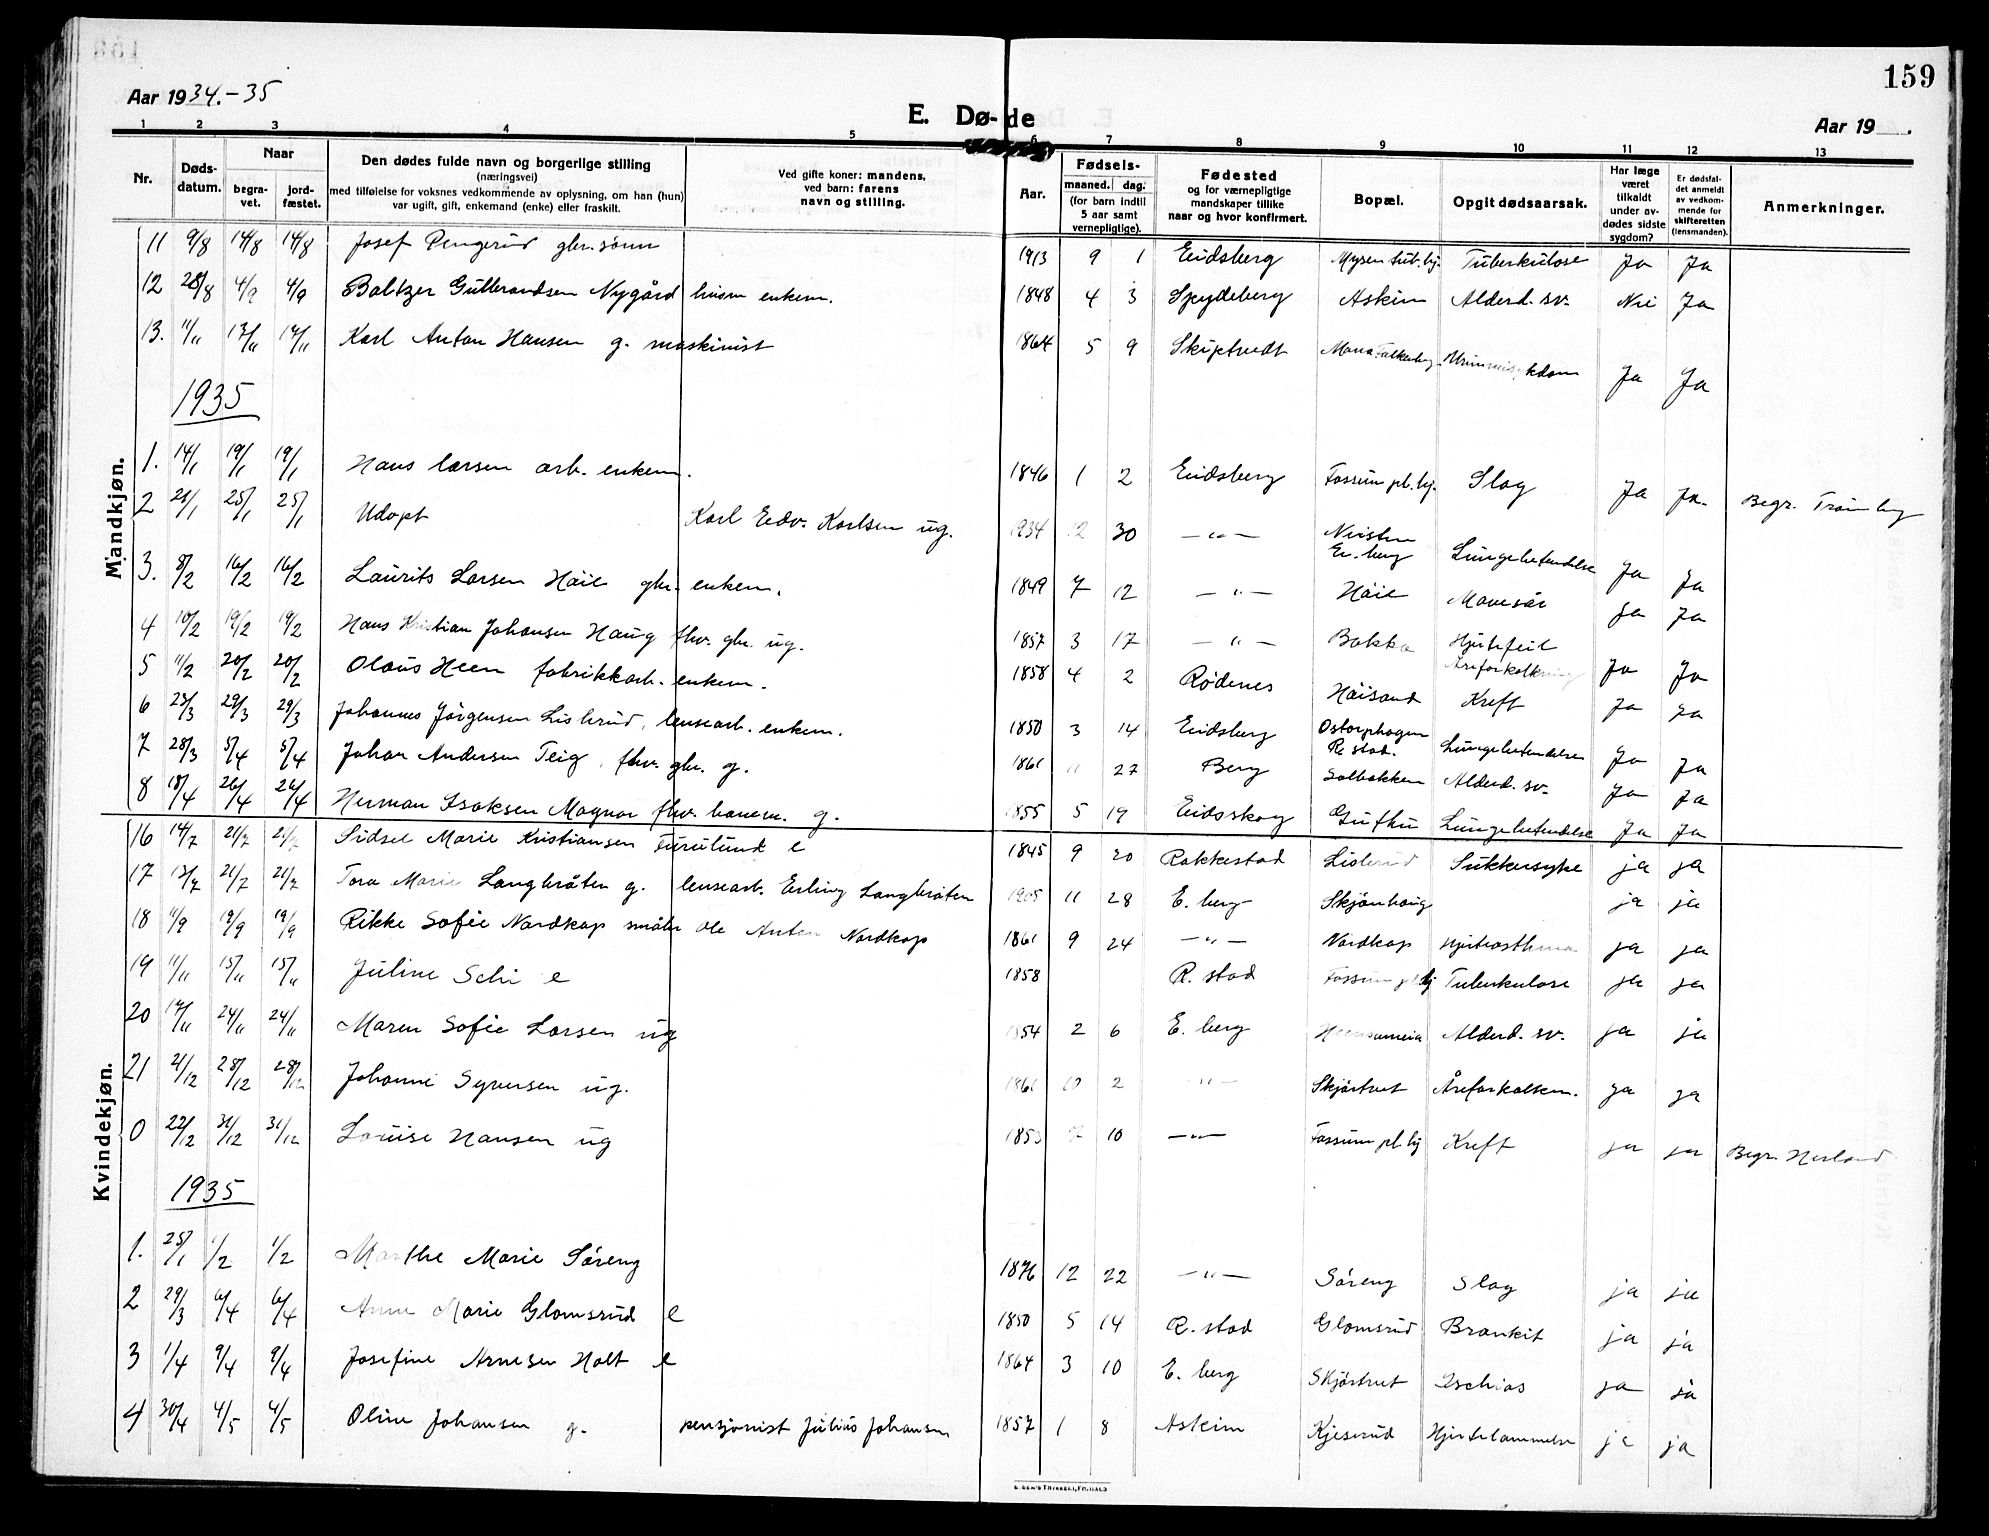 159
Aar 1934.-35
E. Dø-de
Aar 19 .
1 2 3 4 5 6 7 8 9 10 11 12 13
Nr. Døds-datum. Naar begra-vet. jord-fæstet.
Den dødes fulde navn og borgerlige stilling
(næringsvei)
med tilføielse for voksnes vedkommende av oplysning, om han (hun)
var ugift, gift, enkemand (enke) eller fraskilt.
Ved gifte koner: mandens,
ved barn: farens
navn og stilling.
Aar.
Fødsels-
maaned. dag.
(for barn indtil
5 aar samt
vernepligtige).
Fødested
og for værnepligtige
mandskaper tillike
naar og hvor konfirmert.
Bopæl.
Opgit dødsaarsak.
Har læge
været
tilkaldt
under av-
dødes sidste
sygdom?
Er dødsfal-
det anmeldt
av vedkom-
mende for
skifteretten
(lensmanden).
Anmerkninger.
Mandkjøn.
11 9/8 14/8 14/8 Josef Pengerud gbr. sønn 1913 9 1 Eidsberg Mysen tub.hj. Tuberkulose Ja Ja
12 28/8 4/9 4/9 Baltzer Gulbrandsen Nygård husm enkem. 1848 4 3 Spydeberg Askim Alderd. sv. Nei Ja
13. 11/11 17/11 17/11 Karl Anton Hansen g. maskinist 1864 5 9 Skiptvedt Ja Ja
1935
1. 14/1 19/1 19/1 Hans Larsen arb. enkem. 1846 1 2 Eidsberg Fossum pl.hj. Slag Ja Ja. Begr. Trømborg
2 21/1 25/1 25/1 Udøpt Karl Edv. Karlsen ug. 1934 12 30 — " — E. berg Lungebetendelse Ja Ja
3. 8/2 16/2 16/2 Laurits Larsen Høie gbr. enkem. 1849 7 12 — " — Høie Mavesår Ja Ja
4 10/2 19/2 19/2 Hans Kristian Johansen Haug fhv. gbr. ug. 1857 3 17 — " — Bakka Hjertefeil Åreforkalkning Ja Ja
5 11/2 20/2 20/2 Olaus Heen fabrikkarb. enkem. 1858 4 2 Rødenes Høisand Kreft Ja Ja
6 23/3 29/3 29/3 Johannes Jørgensen Lislerud, lensearb. enkem. 1850 3 14 Eidsberg R. stad. Lungebetendelse Ja Ja
7 28/3 5/4 5/4 Johan Andersen Teig, fhv. gbr. g. 1861 11 27 Berg Solbakken Alderd. sv. Ja Ja
8 18/4 26/4 26/4 Herman Isaksen Magnor fhv. banem. g. 1855 5 19 Eidsskog Guthu Lungebetendelse Ja Ja
Kvindekjøn.
16 14/7 21/7 21/7 Sidsel Marie Kristiansen Furulund e 1845 9 20 Rakkestad Lislerud Sukkersyke ja ja
17 17/7 21/7 21/7 Tora Marie Langbråten g. lensearb. Erling Langbråten 1905 11 28 E. berg Skjønhaug ja ja
18 11/9 19/9 19/9 Rikke Sofie Nordkap småbr Ole Anton Nordkap 1861 9 24 — " — Nordkap Hjerteasthma ja ja
19 11/11 15/11 15/11 Juline Schi e 1858 R. stad Fossum pl.hj Tuberkulose ja ja
20 17/11 24/11 24/11 Maren Sofie Larsen ug 1854 2 6 E. berg Alderd. sv. ja ja
21 21/12 28/12 28/12 Johanne Syversen ug. 1861 10 2 — " — Skjørtvet Åreforkalkn. ja ja
0 22/12 31/12 31/12 Louise Hansen ug 1853 7 10 — " — Fossum pl. hj Kreft ja ja Begr. Herland
1935
1. 25/1 1/2 1/2 Marthe Marie Søreng 1876 12 22 — " — Søreng Slag ja ja
2 29/3 6/4 6/4 Anne Marie Glomsrud e 1850 5 14 R. stad Glomsrud Bronkit ja ja
3 1/4 9/4 9/4 Josefine Arnesen Holt e 1864 3 10 E. berg Skjørtvet Ischias ja ja
4 30/4 4/5 4/5 Oline Johansen g. pensjonist Julius Johansen 1857 1 8 Askim Kjeserud Hjertelammelse ja ja